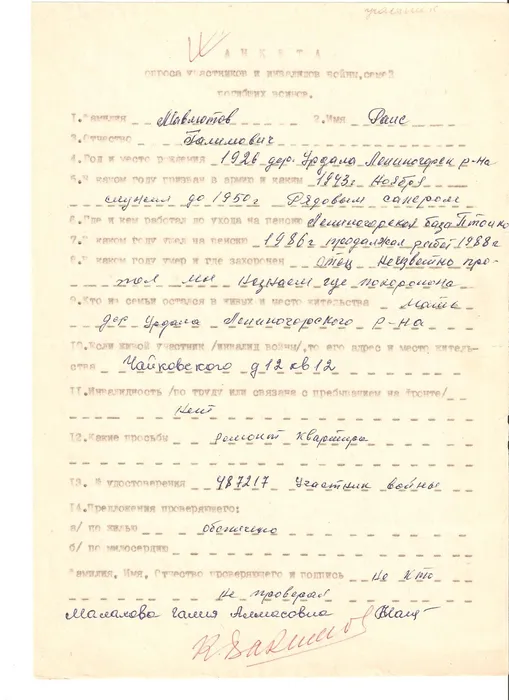 участник
АНКЕТА
опроса участников и инвалидов войны, семей
погибших воинов.
1. Фамилия Мавлютов 2. Имя Раис
3. Отчество Галимович
4. Год и место рождения 1926 дер. Урдала Лениногорск р-на
5. В каком году призван в армию и каким 1943г Ноябрь
служил до 1950г Рядовым сапером
6. Где и кем работал до ухода на пенсию Лениногорская база
7. В каком году ушел на пенсию 1986г продолжал работ 1988г
8. В каком году умер и где захоронен отец Неизвестно про-
мы незнаем где похоронена
9. Кто из семьи остался в живых и место жительства мать
дер Урдала Лениногорского р-на
10. Если живой участник /инвалид войны/, то его адрес и место житель-
ства Чайковского д12 кв12
11. Инвалидность /по труду или связана с пребыванием на фронте/
Нет
12. Какие просьбы ремонт квартиры
13. № удостоверения 487217 Участник войны
14. Предложения проверяющего:
а/ по жилью обспечено
б/ по милосердию
Фамилия, Имя, Отчество проверяющего и подпись Не кто
не проверял
Малахова Галия Алмасовна